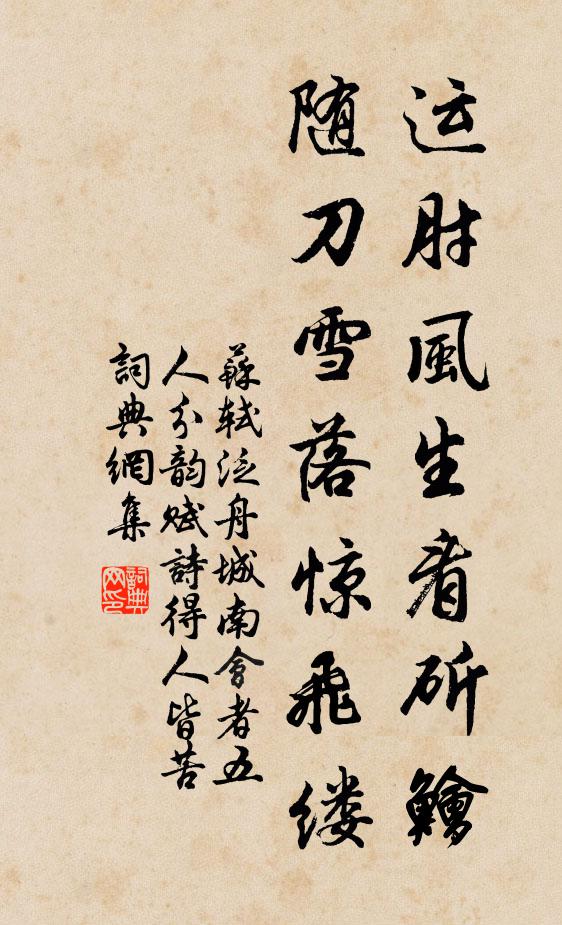 运肘風生看斫鱠
随刀雪落惊飛缕
蘇轼泛舟城南會者五
人分韵赋詩得人皆苦
詞典網集
詞典
网印